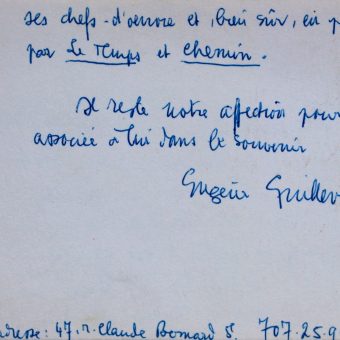 ses chefs-d'oeuvre et, bien sûr, en p
par Le Temps et Chemin.
Il reste notre affection pour
associée à lui dans le souvenir
Eugène Guillev
adresse: 47, r. Claude Bernard 5. 707.25.9